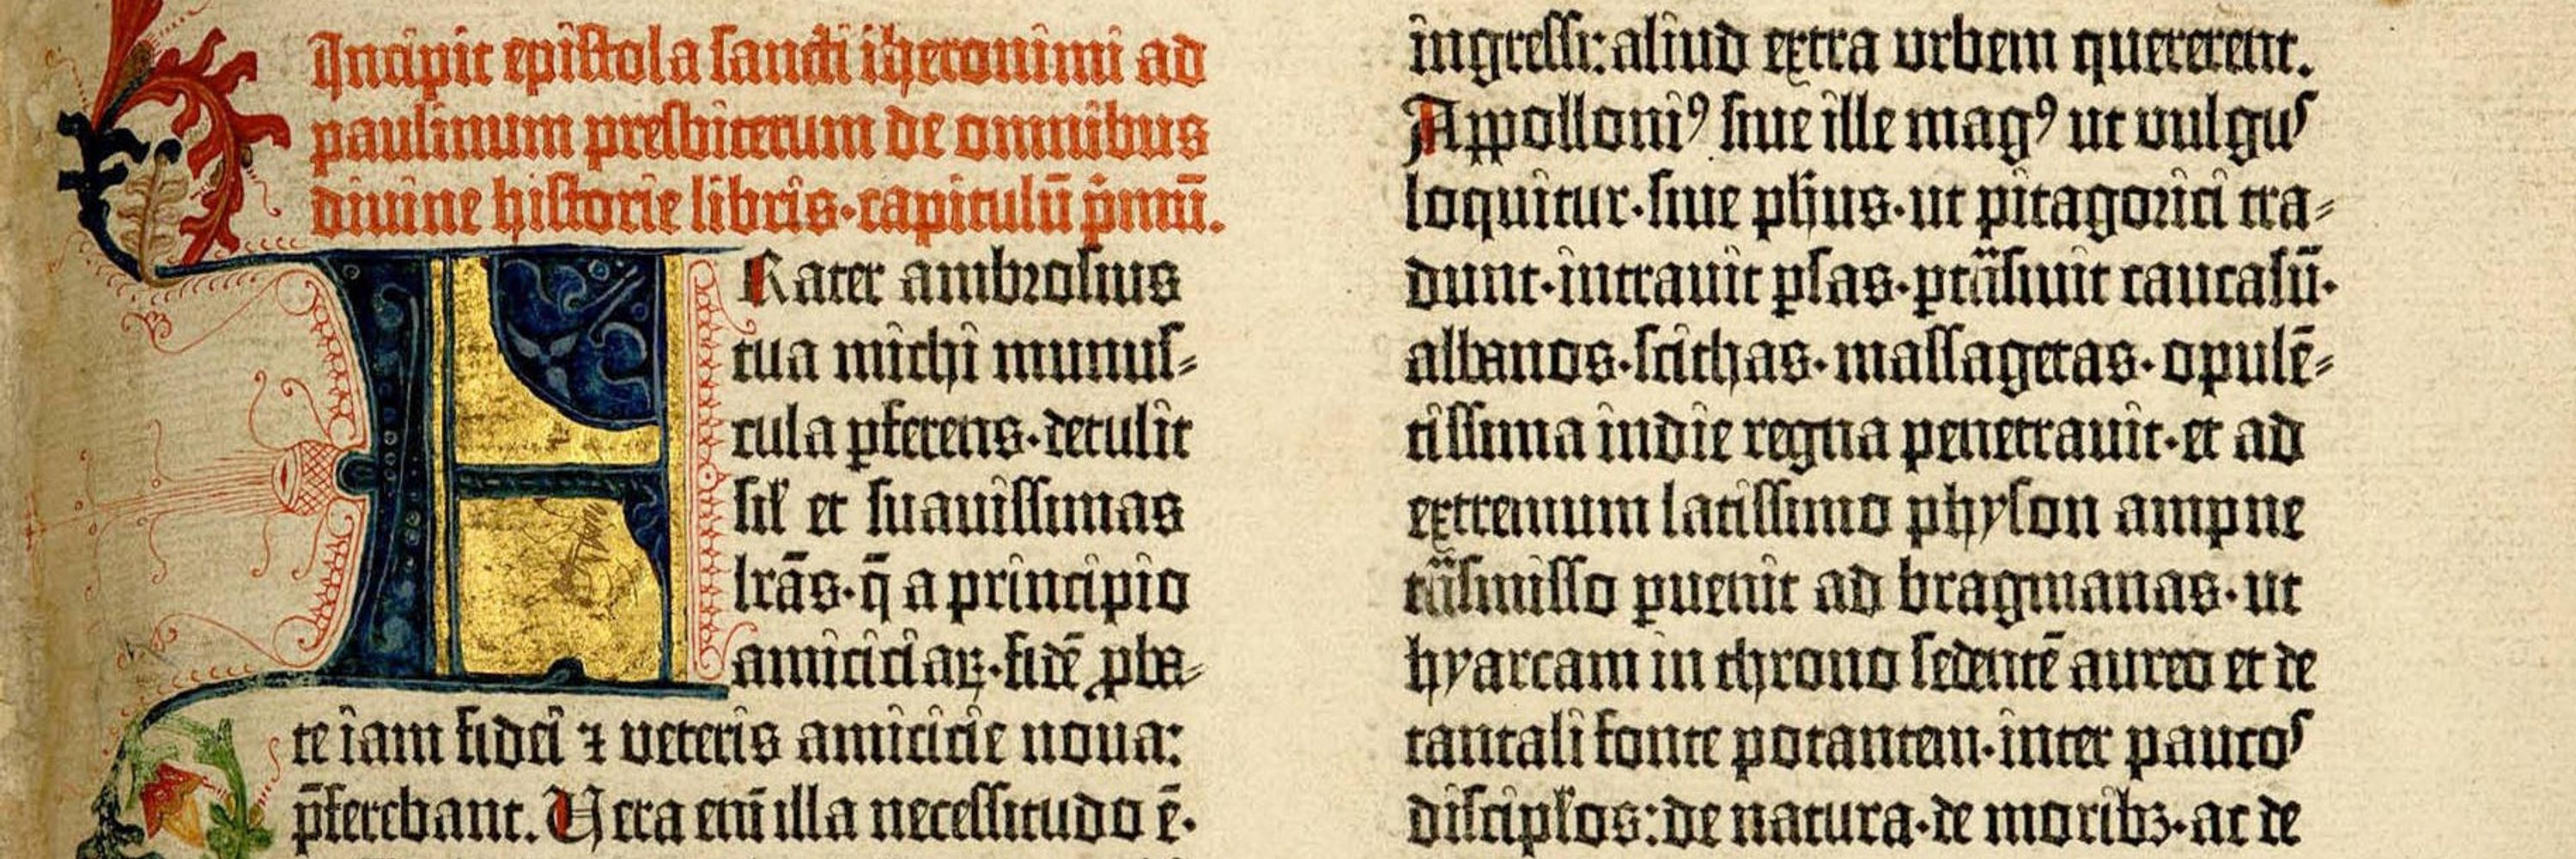 Incipit epistola sancti iheronimi ad
paulinum presbiterum de omnibus
divine historie libris·capitulū p̄mū.
FRater ambrosius
tua michi munus⸗
cula pferens·detulit
sil̄ et suauissimas
lrās·q̄ a principio
amiciciaꝝ·fidē ꝓba⸗
te iam fidei ⁊ veteris amicicie noua:
p̄ferebant. Vera eni̅ illa necessitudo ē·
ingressi: aliud extra urbem quererent.
Appolloniꝰ siue ille magꝰ ut vulgus
loquitur·siue ph̄us·ut pitagorici tra⸗
dunt·intrauit ꝑsas·ꝑtrāsiuit caucasū·
albanos·scithas·massagetas·opulē⸗
tissima indie regna penetrauit·et ad
extremum latissimo physon ampne
trāsmisso ꝑuenit ad bragmanas·ut
hyarcam in throno sedentē aureo et de
tantali fonte potantem·inter paucos
discipl̄os: de natura·de moribꝫ·ac de